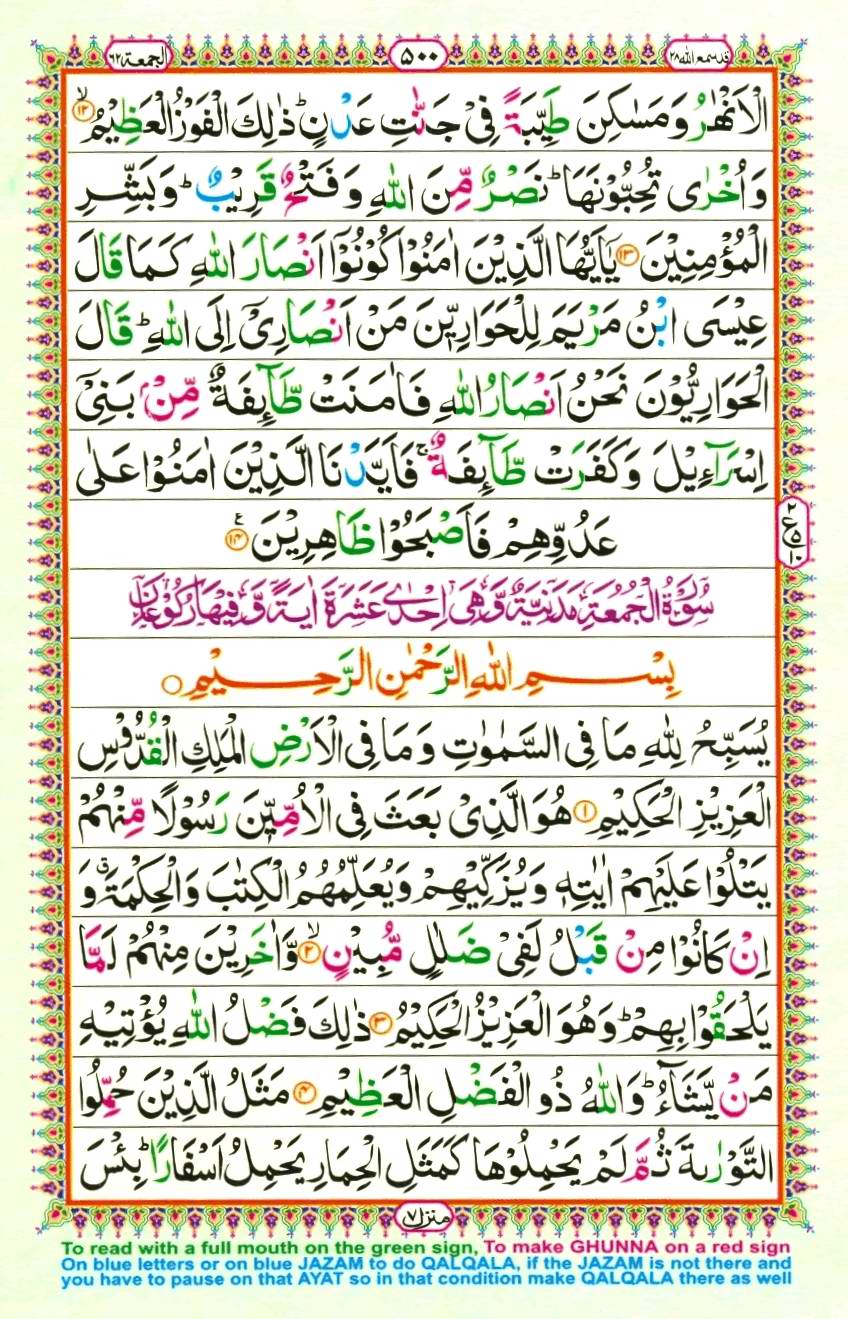 قد سمع الله ٢٨ ٥٠٠ الجمعة ٦٢
الْاَنْهٰرُ وَمَسٰكِنَ طَيِّبَةً فِيْ جَنّٰتِ عَدْنٍ ؕ ذٰلِكَ الْفَوْزُ الْعَظِيْمُ ۙ‏﴿۱۲﴾
وَاُخْرٰى تُحِبُّوْنَهَا ؕ نَصْرٌ مِّنَ اللّٰهِ وَفَتْحٌ قَرِيْبٌ ؕ وَبَشِّرِ
الْمُؤْمِنِيْنَ ﴿۱۳﴾ يٰۤاَيُّهَا الَّذِيْنَ اٰمَنُوْا كُوْنُوْۤا اَنْصَارَ اللّٰهِ كَمَا قَالَ
عِيْسَى ابْنُ مَرْيَمَ لِلْحَوَارِيّٖنَ مَنْ اَنْصَارِيْۤ اِلَى اللّٰهِ ؕ قَالَ
الْحَوَارِيُّوْنَ نَحْنُ اَنْصَارُ اللّٰهِ فَاٰمَنَتْ طَّآئِفَةٌ مِّنْۢ بَنِيْۤ
اِسْرَآءِيْلَ وَكَفَرَتْ طَّآئِفَةٌ ۚ فَاَيَّدْنَا الَّذِيْنَ اٰمَنُوْا عَلٰى
عَدُوِّهِمْ فَاَصْبَحُوْا ظَاهِرِيْنَ ﴿۱۴﴾ ع
٢ ع ٥ ١٠
سُوْرَةُ الْجُمُعَةِ مَدَنِيَّةٌ وَّهِيَ اِحْدٰى عَشَرَةَ اٰيَةً وَّفِيْهَا رُكُوْعَانِ
بِسْمِ اللّٰهِ الرَّحْمٰنِ الرَّحِيْمِ ○
يُسَبِّحُ لِلّٰهِ مَا فِي السَّمٰوٰتِ وَمَا فِي الْاَرْضِ الْمَلِكِ الْقُدُّوْسِ
الْعَزِيْزِ الْحَكِيْمِ ﴿۱﴾ هُوَ الَّذِيْ بَعَثَ فِي الْاُمِّيّٖنَ رَسُوْلًا مِّنْهُمْ
يَتْلُوْا عَلَيْهِمْ اٰيٰتِهٖ وَيُزَكِّيْهِمْ وَيُعَلِّمُهُمُ الْكِتٰبَ وَالْحِكْمَةَ ۗ وَ
اِنْ كَانُوْا مِنْ قَبْلُ لَفِيْ ضَلٰلٍ مُّبِيْنٍ ۙ‏﴿۲﴾ وَّاٰخَرِيْنَ مِنْهُمْ لَمَّا
يَلْحَقُوْا بِهِمْ ؕ وَهُوَ الْعَزِيْزُ الْحَكِيْمُ ﴿۳﴾ ذٰلِكَ فَضْلُ اللّٰهِ يُؤْتِيْهِ
مَنْ يَّشَآءُ ؕ وَاللّٰهُ ذُو الْفَضْلِ الْعَظِيْمِ ﴿۴﴾ مَثَلُ الَّذِيْنَ حُمِّلُوا
التَّوْرٰىةَ ثُمَّ لَمْ يَحْمِلُوْهَا كَمَثَلِ الْحِمَارِ يَحْمِلُ اَسْفَارًا ؕ بِئْسَ
منزل ٧
To read with a full mouth on the green sign, To make GHUNNA on a red sign
On blue letters or on blue JAZAM to do QALQALA, if the JAZAM is not there and
you have to pause on that AYAT so in that condition make QALQALA there as well